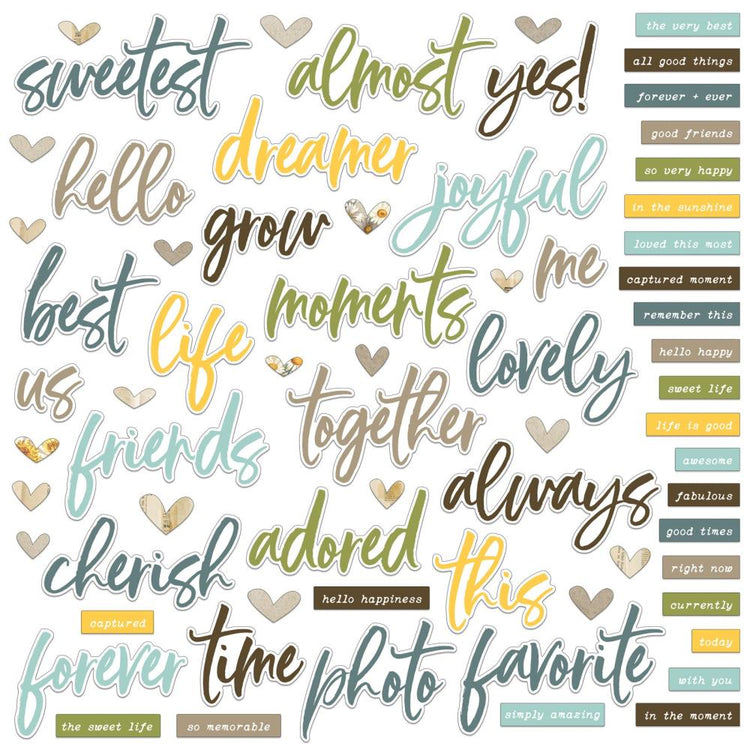 sweetest
almost
yes!
hello
dreamer
grow
joyful
me
best
life
moments
lovely
us
friends
together
always
cherish
adored
this
hello happiness
captured
forever
time
photo
favorite
the sweet life
so memorable
simply amazing
the very best
all good things
forever + ever
good friends
so very happy
in the sunshine
loved this most
captured moment
remember this
hello happy
sweet life
life is good
awesome
fabulous
good times
right now
currently
today
with you
in the moment